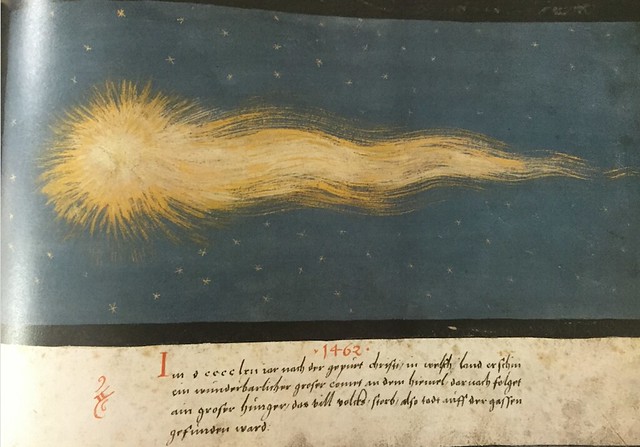 · 1462 ·
Im ccccLxii iar nach der gepürt christi, in welsch land erschin
ein wunderbarlicher groser comet an dem himel, dar nach folget
ain groser hünger, das vill volcks, storb, also todt auff der gassen
gefünden ward.